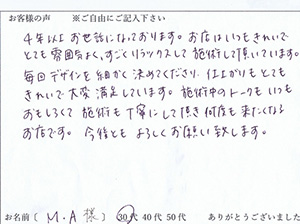 お客様の声　※ご自由にご記入下さい
4年以上お世話になっております。お店はいつもきれいで
とても雰囲気よく、すごくリラックスして施術して頂いています。
毎回デザインを細かく決めてくださり、仕上がりもとても
きれいで大変満足しています。施術中のトークもいつも
おもしろくて施術も丁寧にして頂き何度も来たくなる
お店です。今後ともよろしくお願い致します。
お名前〔 M・A 様 〕 30代 40代 50代 ありがとうございました